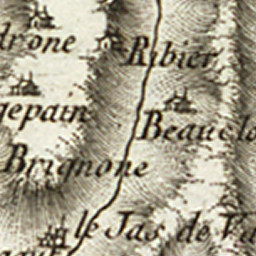 drone
Ribier
gepain
Beauclo
Brignone
le Jas de Va